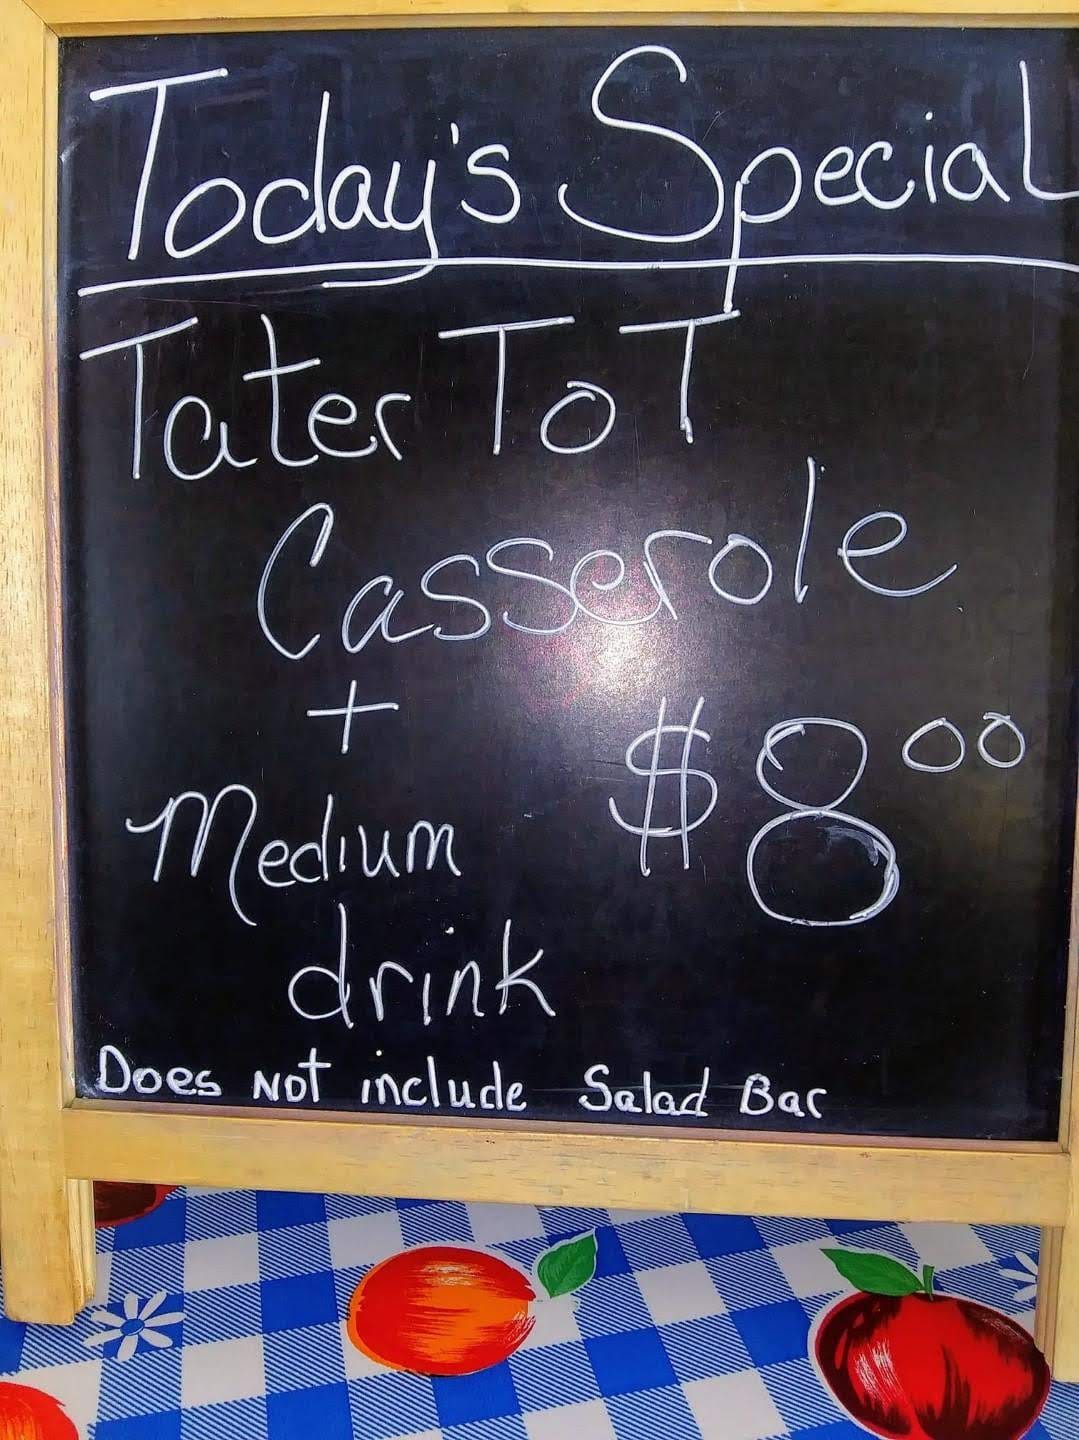 Today's Special
Tater ToT
Casserole
+
Medium $8.00
drink
Does Not include Salad Bar